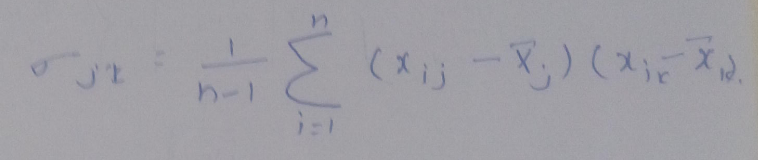 σ_{jk} = \frac{1}{n-1} \sum_{i=1}^{n} (x_{ij} - \overline{x}_j)(x_{ik} - \overline{x}_k).